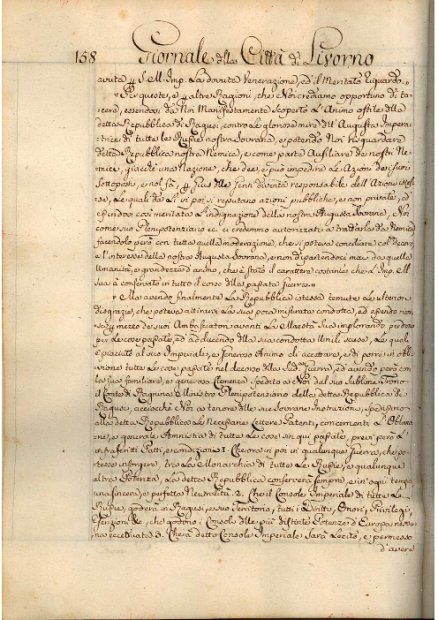 158 Giornale della Città di Livorno
avuta p S. M. Imp. La dovuta Venerazione, ed il Meritato Riguardo.
Per queste, e p altre Ragioni, che Non crediamo opportuno di ta-
cere, essendosi da Noi Manifestamente Scoperto L'Animo ostile della
detta Repubblica di Ragusi, contro Le gloriose mire dell'Augusta Impera-
trice di tutte le Russie nostra Sovrana, e potendo Noi Riguardare
detta Repubblica nostra Nemica, e come parte Ausiliare da nostri Ne-
mici, giacchè una Nazione, che dee, e può impedire Le Azioni de suoi
Sottoposti, e nol fa, p Jus delle Genti diventa responsabile dell'Azioni istes-
se, Le quali da Lì in poi si reputano azioni pubbliche, e non private, ed
essendosi così meritata L'indignazione della nostra Augusta Sovrana, Noi
come suo Plenipotenziario ci credemmo autorizzati a trattarla da Nemica
facendolo però con tutta quella moderazione, che si poteva conciliare col Decoro
e l'interesse della nostra Augusta Sovrana, e non dipartendoci mai da quella
Umanità, e grandezza d'animo, che è stato il carattere costante che L'Imp. M.
Sua à conservato in tutto il corso della passata Guerra.
Ma avendo finalmente La Repubblica istessa temute Le ulteriori
disgrazie, che poteva attirarsi La sua poca misurata condotta, ed essendo ricorsa
p mezzo de suoi Ambasciatori avanti La Maestà Sua implorando perdono
per Le cose passate, ed adducendo della sua condotta umili scuse, Le quali
è piaciuto al suo Imperiale, e generoso Animo di accettare, e di porre in obli-
vione tutte Le cose passate nel decorso della Sud.a Guerra, ed avendo però con
La sua familiare, e generosa Clemenza Spedito a Noi dal suo Sublime Trono
il Conte di Ragnina Ministro Plenipotenziario della detta Repubblica di
Ragusi, acciocchè Noi a tenore delle sue Sovrane Instruzioni, spedissimo
alla detta Repubblica Le Necessarie Lettere Patenti, concernenti L'Oblivio-
ne, e generale Amnistia di tutte Le cose sin qui passate, previ però L'
infrascritti Patti, e condizioni. 1. Che ora in poi in qualunque Guerra, che po-
tesse insorgere, tra La Monarchia di tutte Le Russie, e qualunque
altra Potenza, La detta Repubblica conserverà sempre, e in ogni tempo
una sincera, e perfetta Neutralità. 2. Che il Console Imperiale di tutte Le
Russie, goderà in Ragusi, e suo Territorio, tutti i Diritti, Onori, Privilegi,
Esenzioni &c., che godono i Consoli delle più distinte Potenze d'Europa nessu-
na eccettuata. 3. Che a detto Console Imperiale Sarà Lecito, e permesso
d'avere